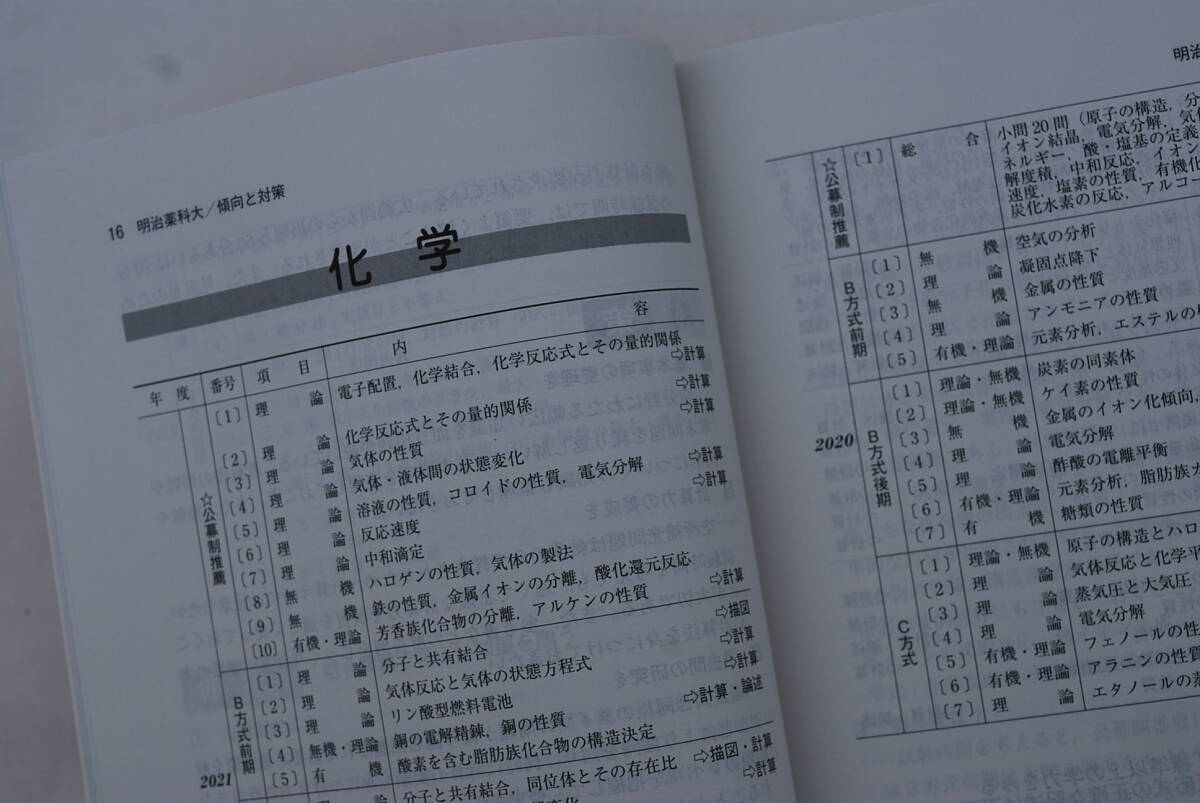 16 明治薬科大／傾向と対策
化 学
年 度 番号 項 目 内 容
☆公募制推薦
〔1〕 理 論 電子配置，化学結合，化学反応式とその量的関係
⇨計算
〔2〕 理 論 化学反応式とその量的関係 ⇨計算
〔3〕 理 論 気体の性質 ⇨計算
〔4〕 理 論 気体・液体間の状態変化
〔5〕 理 論 溶液の性質，コロイドの性質，電気分解 ⇨計算
〔6〕 理 論 反応速度 ⇨計算
〔7〕 理 論 中和滴定
〔8〕 無 機 ハロゲンの性質，気体の製法
〔9〕 無 機 鉄の性質，金属イオンの分離，酸化還元反応
〔10〕 有機・理論 芳香族化合物の分離，アルケンの性質 ⇨計算
2021
B方式前期
〔1〕 理 論 分子と共有結合 ⇨描図
〔2〕 理 論 気体反応と気体の状態方程式 ⇨計算
〔3〕 理 論 リン酸型燃料電池 ⇨計算
〔4〕 無機・理論 銅の電解精錬，銅の性質 ⇨計算・論述
〔5〕 有 機 酸素を含む脂肪族化合物の構造決定
分子と共有結合，同位体とその存在比 ⇨描図・計算
⇨計算
明治
☆公募制推薦
〔1〕 総 合 小問20問（原子の構造，分
イオン結晶，電気分解，気体
ネルギー，酸・塩基の定義
解度積，中和反応，イオン
速度，塩素の性質，有機化
炭化水素の反応，アルコー
2020
B方式前期
〔1〕 無 機 空気の分析
〔2〕 理 論 凝固点降下
〔3〕 無 機 金属の性質
〔4〕 理 論 アンモニアの性質
〔5〕 有機・理論 元素分析，エステルの
B方式後期
〔1〕 理論・無機 炭素の同素体
〔2〕 理論・無機 ケイ素の性質
〔3〕 無 機 金属のイオン化傾向，
〔4〕 理 論 電気分解
〔5〕 理 論 酢酸の電離平衡
〔6〕 有機・理論 元素分析，脂肪族カ
〔7〕 有 機 糖類の性質
C方式
〔1〕 理論・無機 原子の構造とハロ
〔2〕 理 論 気体反応と化学平
〔3〕 理 論 蒸気圧と大気圧
〔4〕 理 論 電気分解
〔5〕 有機・理論 フェノールの性
〔6〕 有機・理論 アラニンの性質
〔7〕 理 論 エタノールの蒸